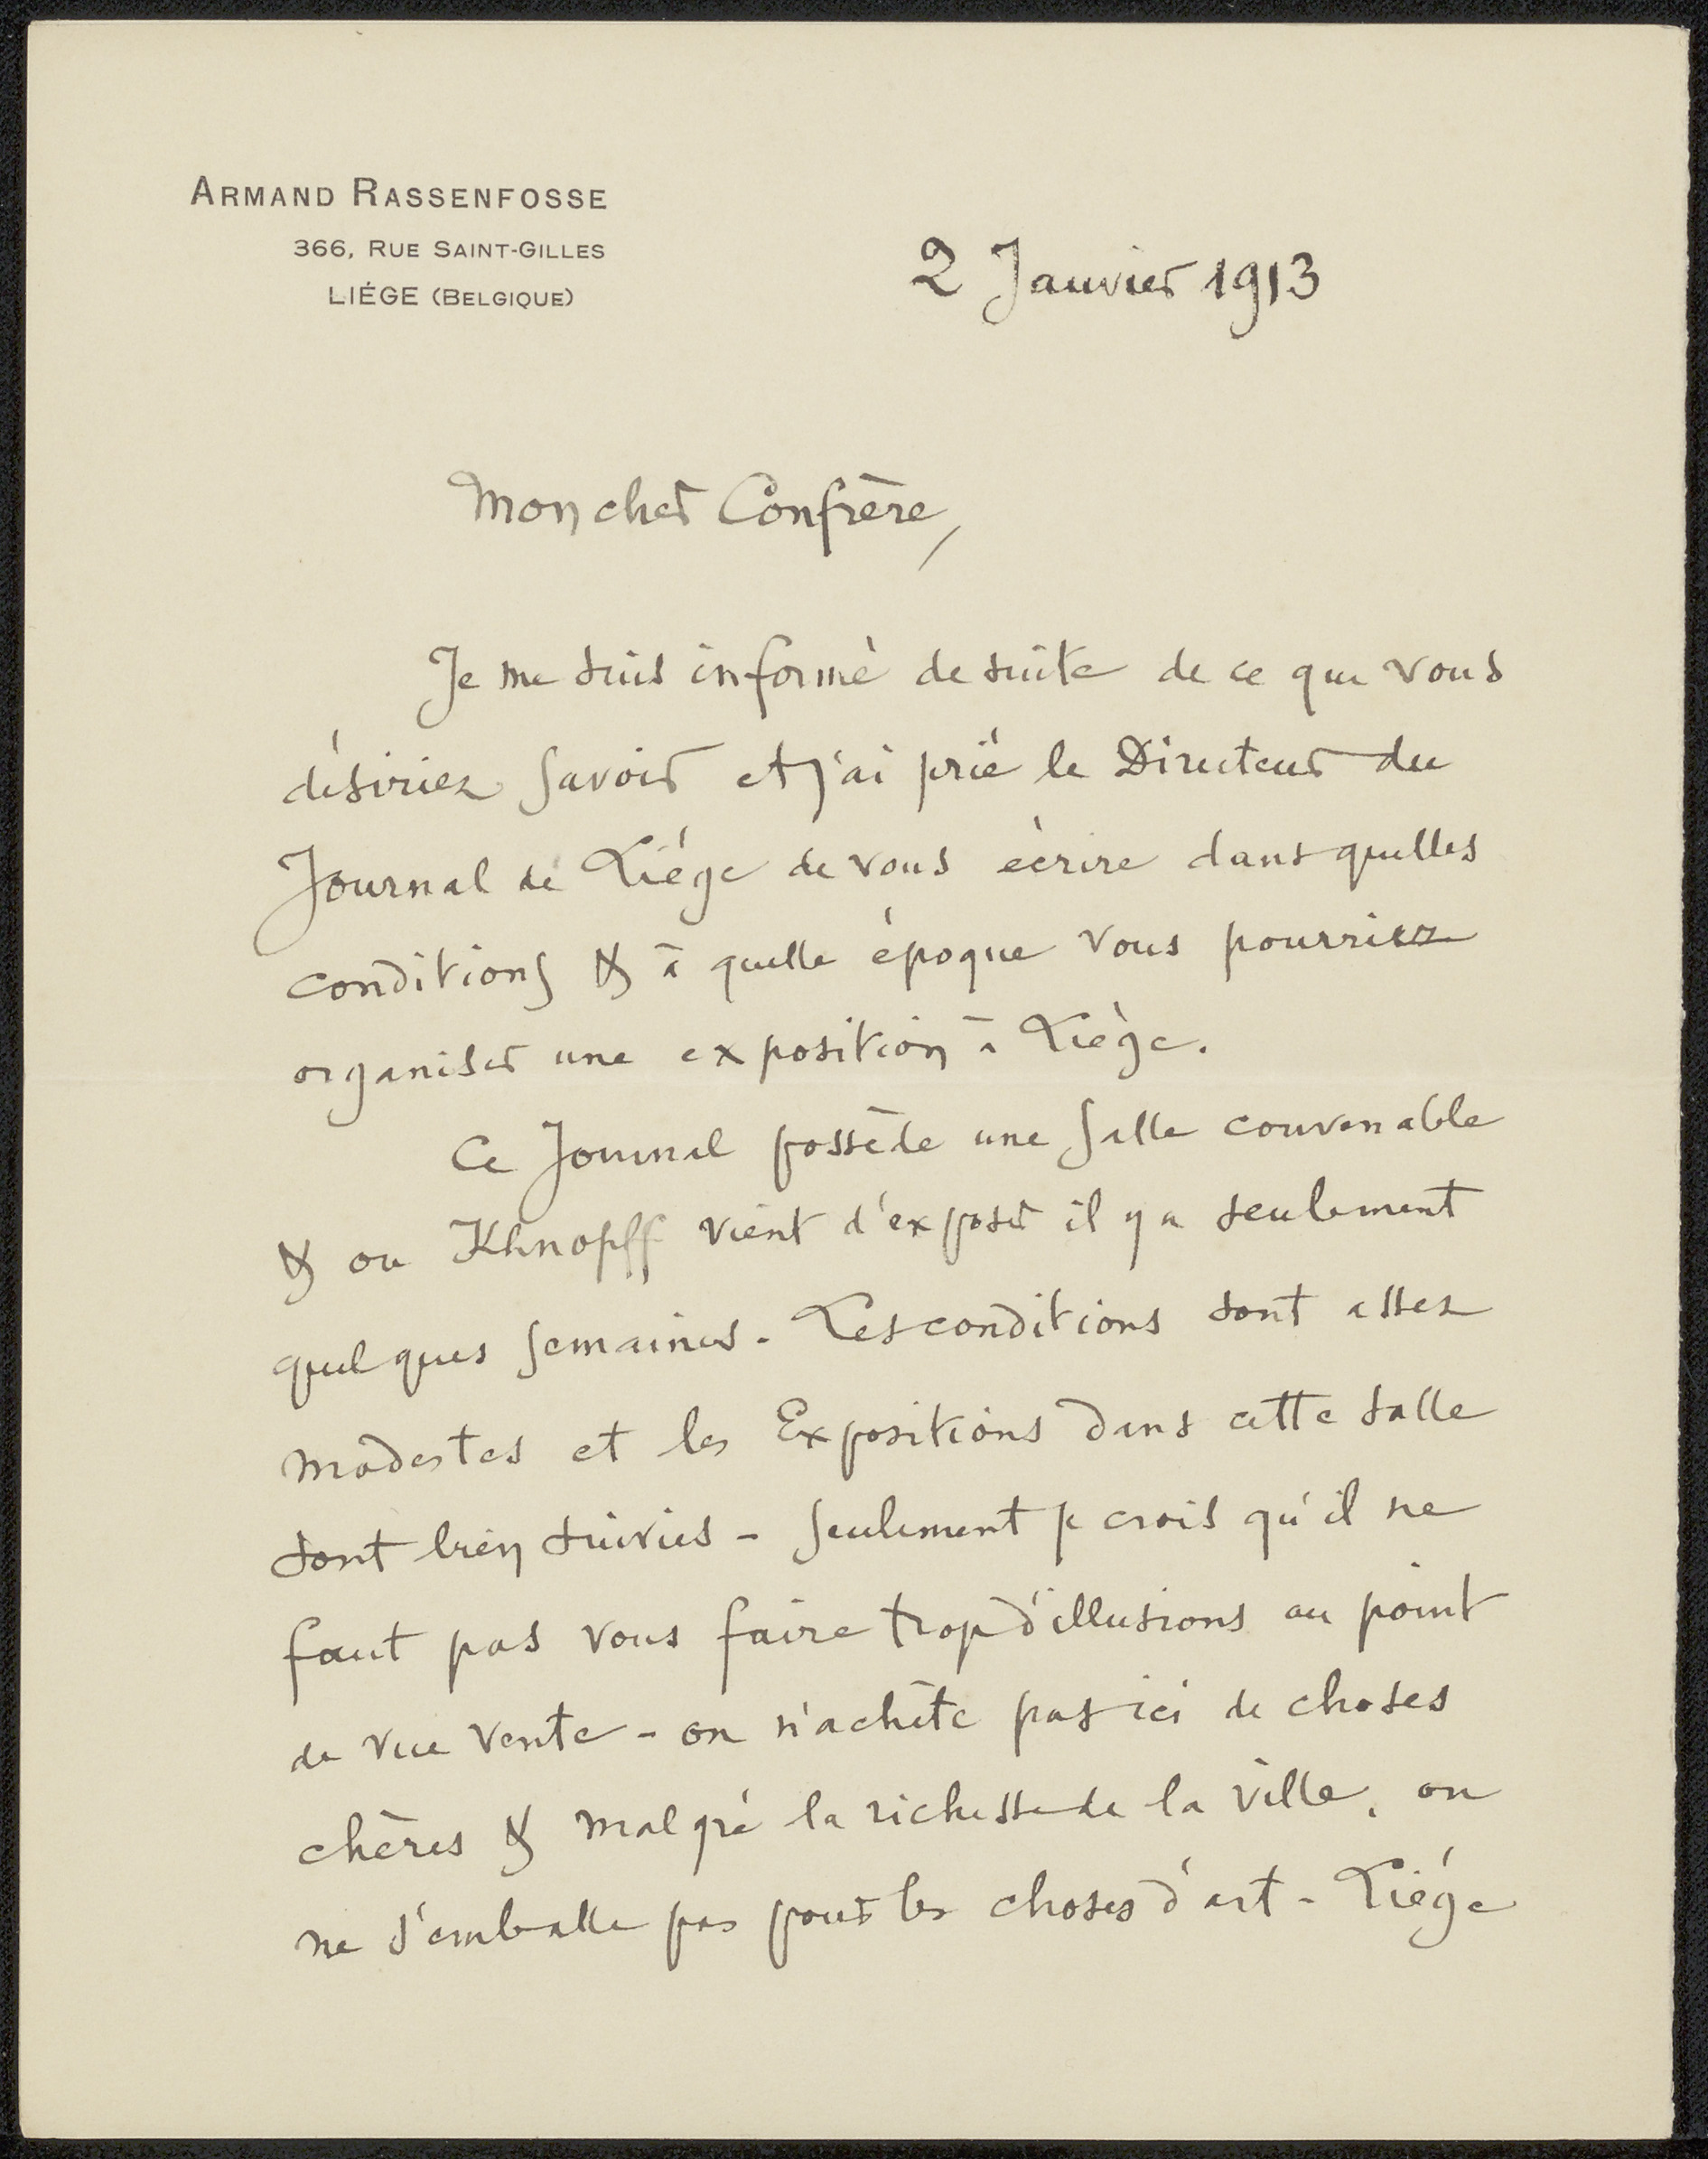 ARMAND RASSENFOSSE
366, RUE SAINT-GILLES
LIÉGE (BELGIQUE)
2 Janvier 1913
Mon cher Confrère,
Je me suis informé de suite de ce que vous
désiriez savoir et j'ai prié le Directeur du
Journal de Liége de vous écrire dans quelles
conditions & à quelle époque vous pourriez
organiser une exposition à Liège.
Ce Journal possède une salle convenable
& ou Khnopff vient d'exposer il y a seulement
quelques semaines - Les conditions sont assez
modestes et les Expositions dans cette salle
sont bien suivies - seulement je crois qu'il ne
faut pas vous faire trop d'illusions au point
de vue vente - on n'achète pas ici de choses
chères & malgré la richesse de la ville, on
ne s'emballe pas pour les choses d'art - Liége